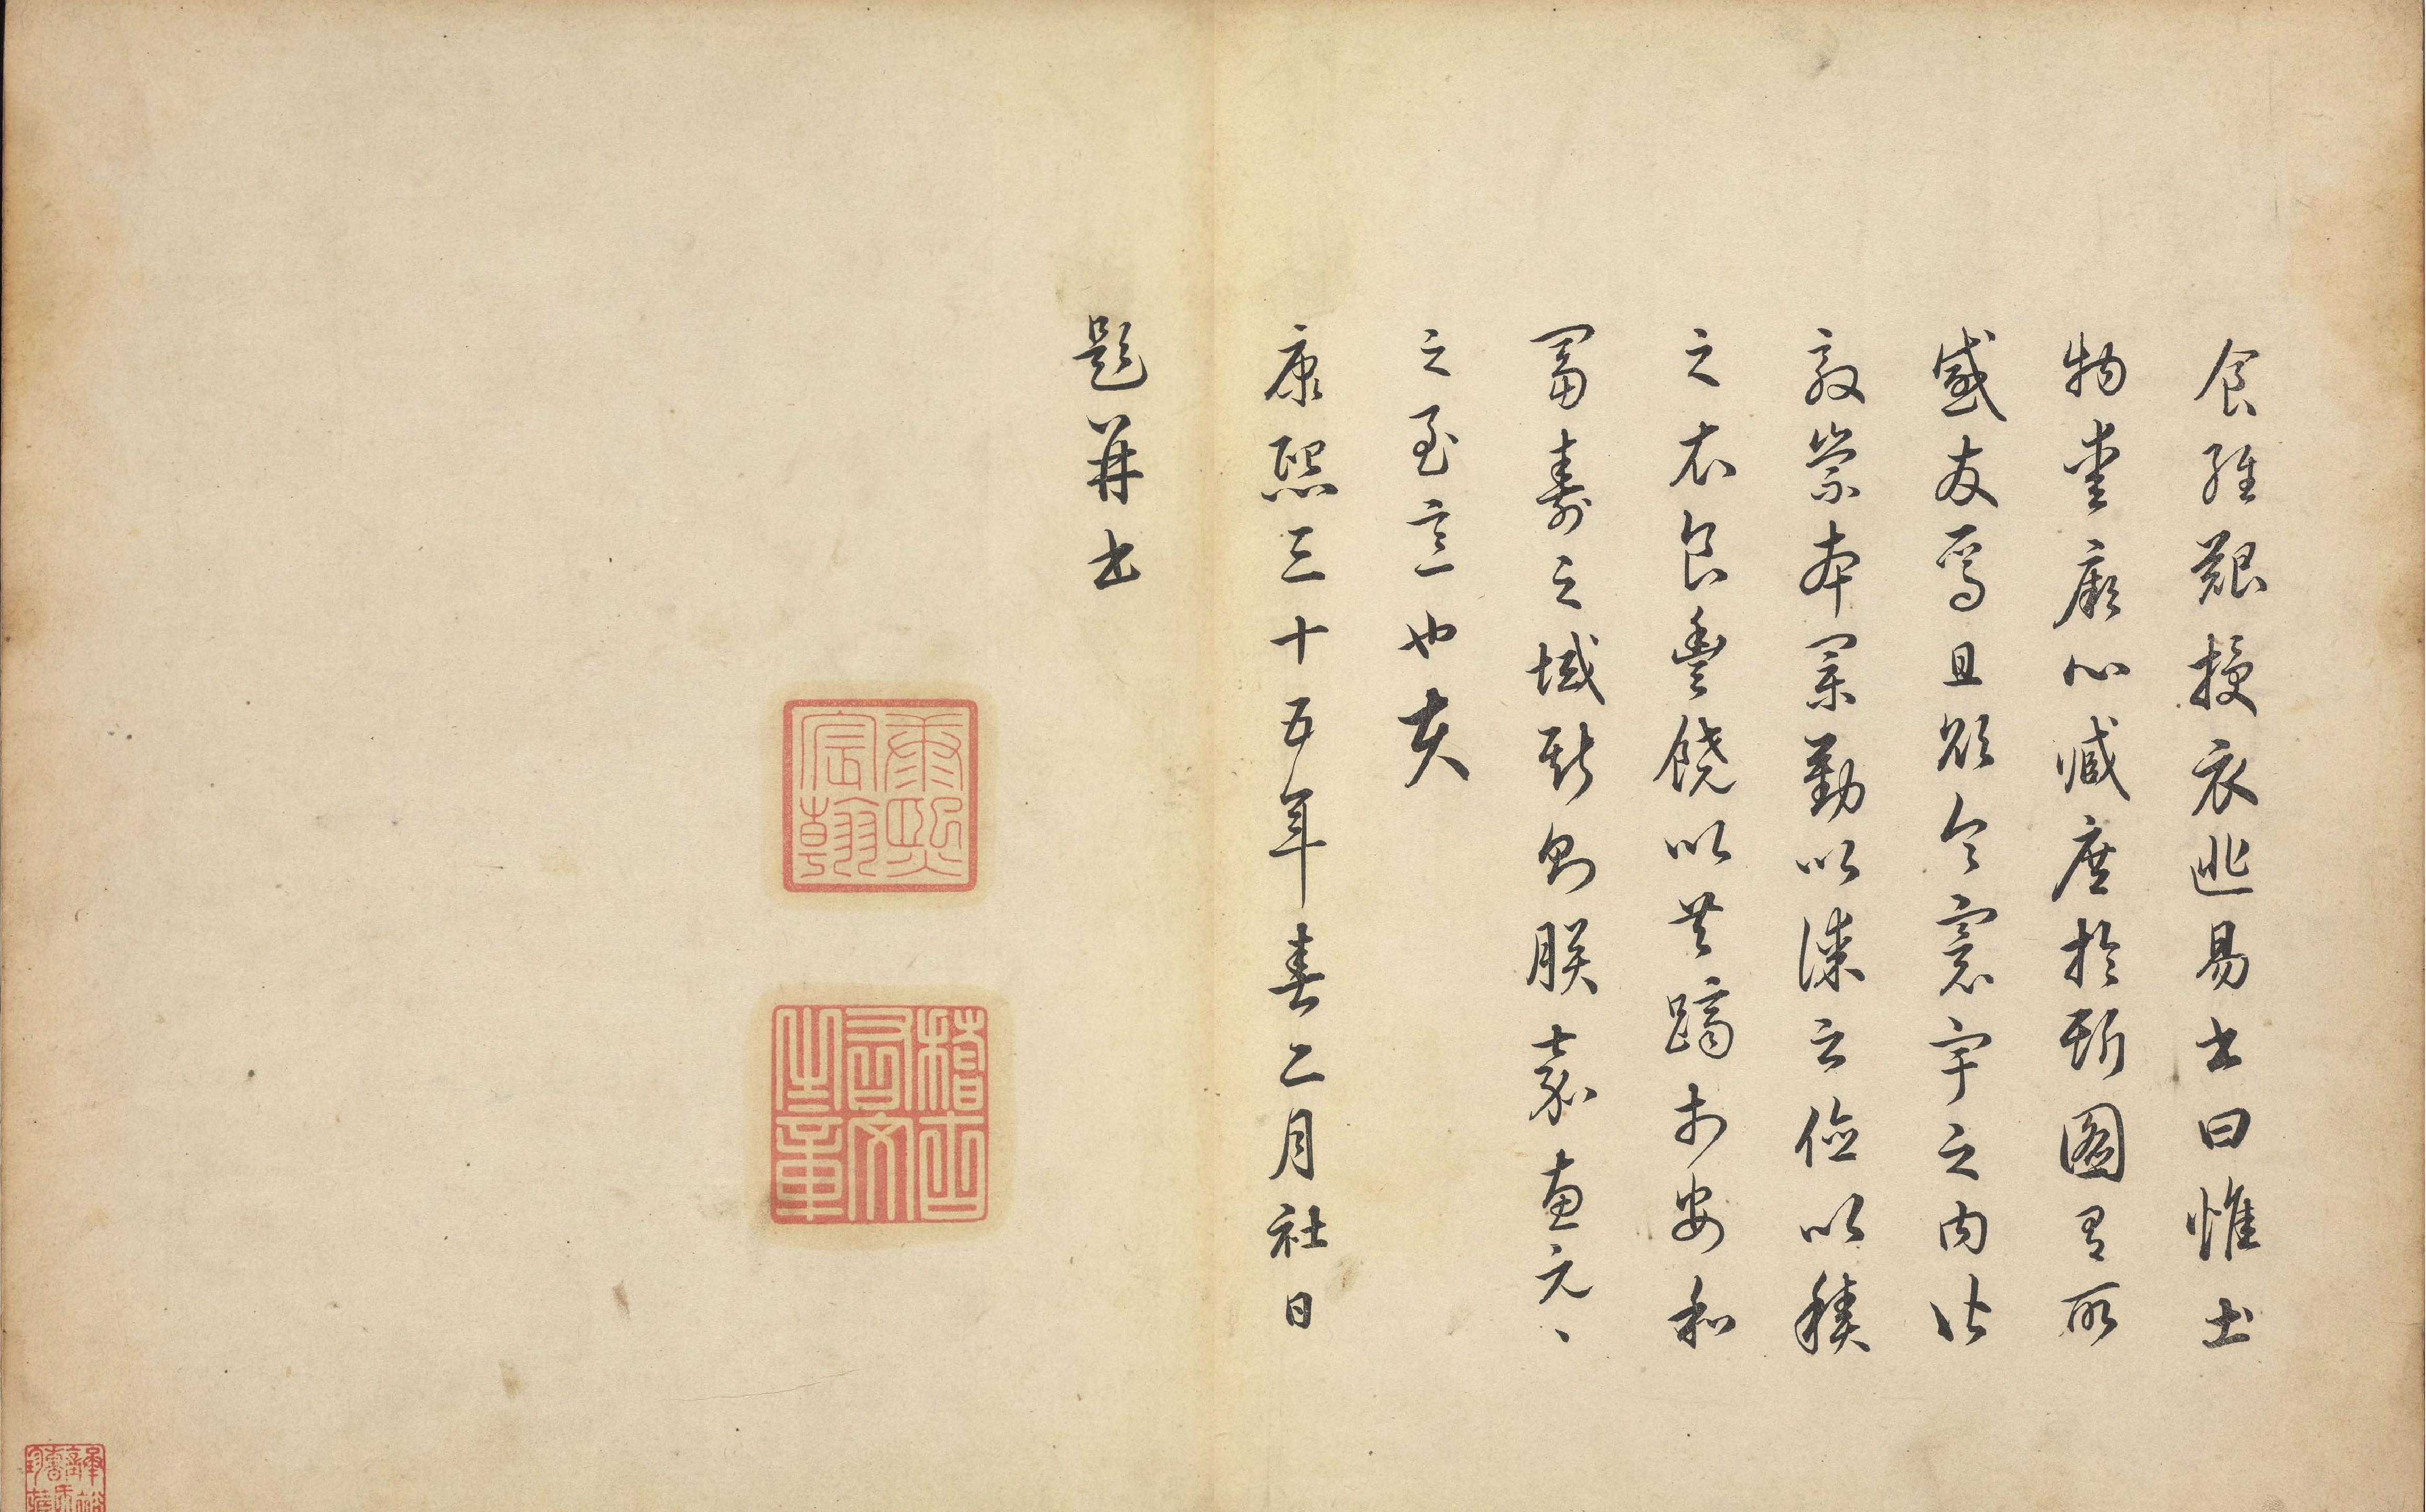 食維艱授衣匪易書曰惟土
物愛厥心臧庶於斯圖有所
感发焉且欲令寰宇之內皆
敦崇本業勤以謀之儉以積
之衣食豐饒以共躋於安和
富壽之域斯則朕嘉惠元〻
之至意也夫
康熙三十五年春二月社日
題并書
康熙宸翰
稽古右文之章